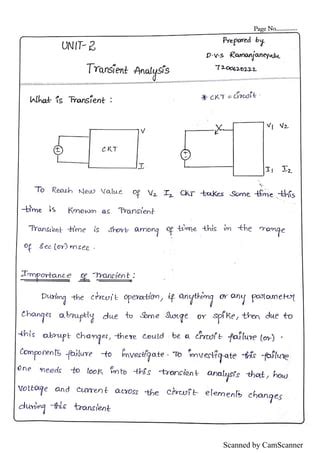 Page No.............
UNIT-2
Prepared by
D.V.S Ramanjaneyulu
Transient Analysis
7200620222
What is Transient :
* CKT = Circuit.
V
V1 V2
CKT
I
I1 I2
To Reach New Value of V2 I2 CKT takes Some time this
time is Known as Transient
Transient time is short among of time this in the range
of Sec (or) msec.
Importance of Transient :
During the circuit operation, if anything or any parameter
changes abruptly due to Some Surge or spike, then due to
this abrupt changes, there could be a Circuit failure (or)
Components failure to investigate. To investigate this failure
One needs to look into this transient analysis that, how
voltage and Current across the circuit elements changes
during this transient
Scanned by CamScanner